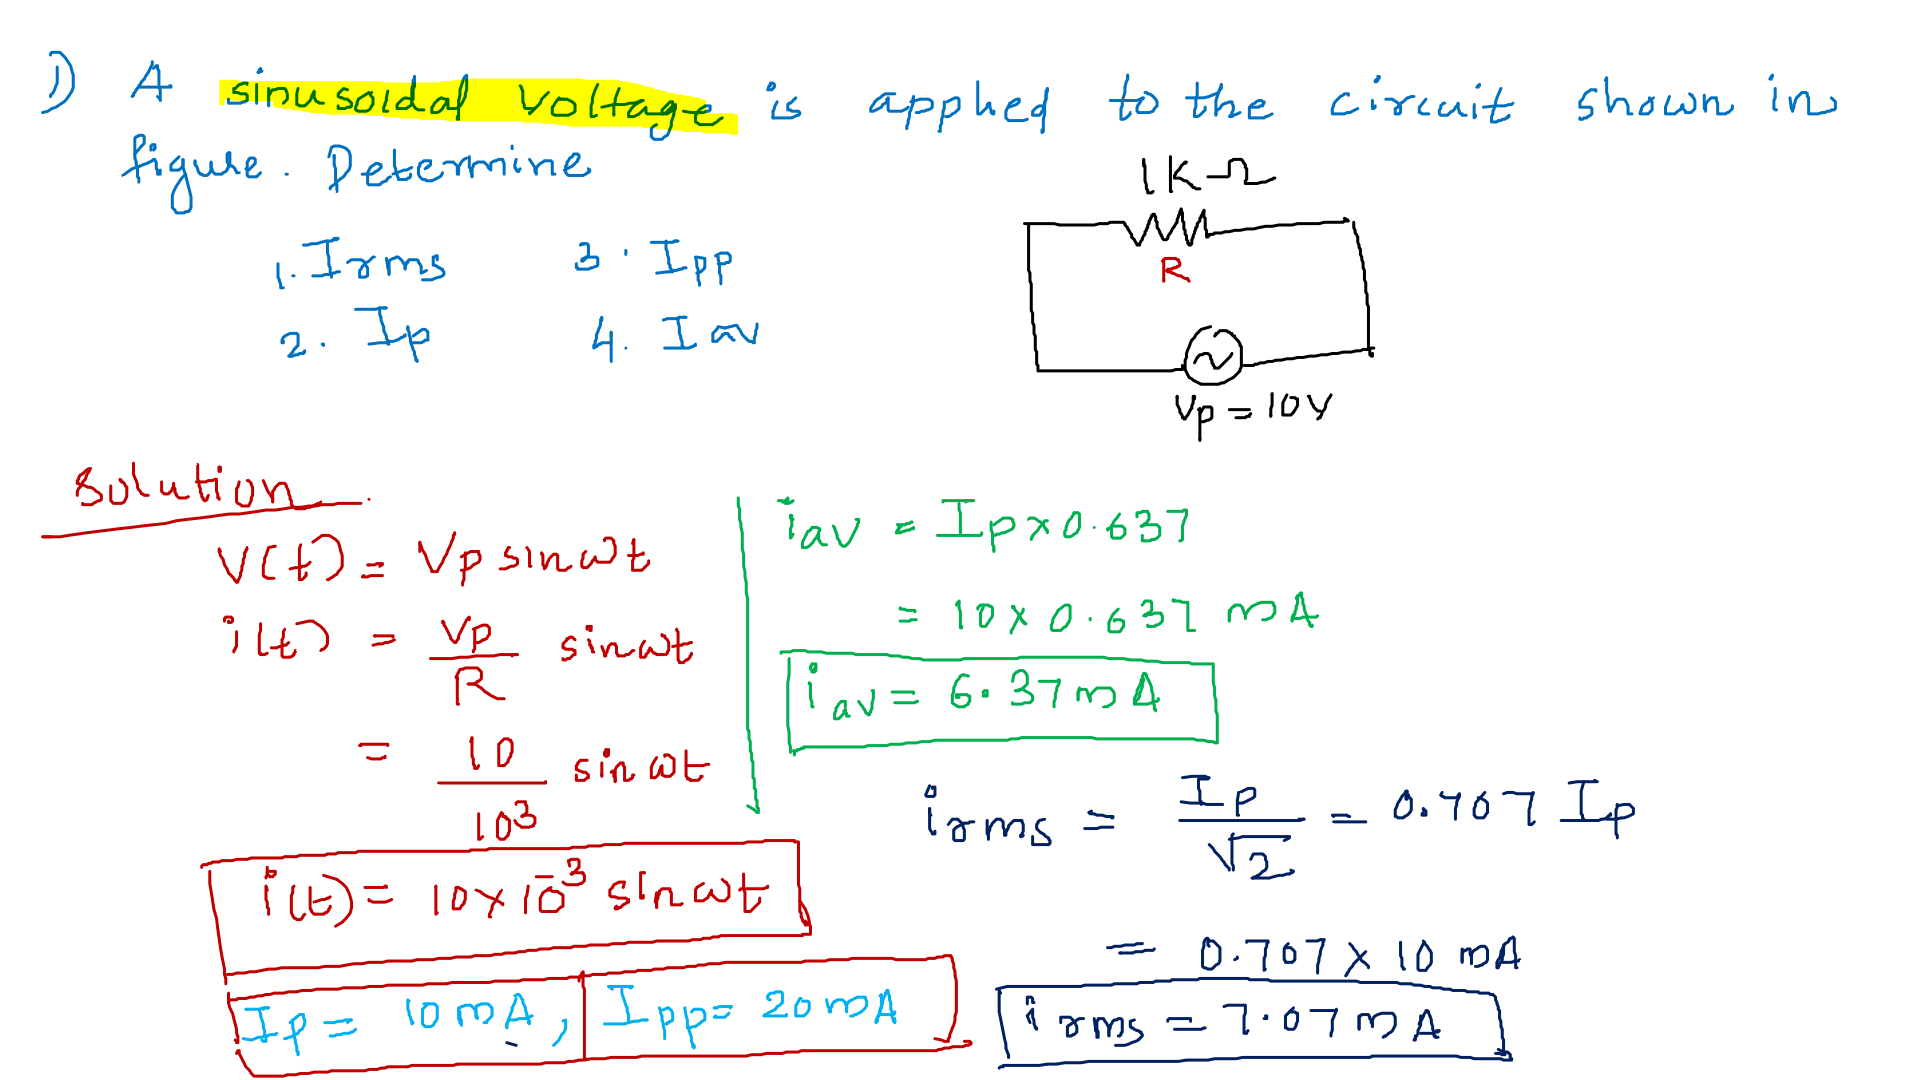 1) A sinusoidal voltage is applied to the circuit shown in
figure. Determine
1. Irms 3. Ipp
2. Ip 4. Iav
1K Ω
R
Vp = 10V
Solution
V(t) = Vp sinωt
i(t) = Vp/R sinωt
= 10/10³ sinωt
i(t) = 10×10⁻³ sinωt
Ip = 10mA, Ipp = 20mA
iav = Ip×0.637
= 10×0.637 mA
iav = 6.37mA
irms = Ip/√2 = 0.707 Ip
= 0.707×10 mA
irms = 7.07mA